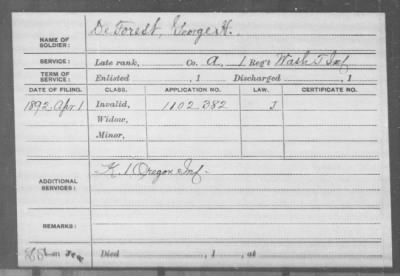 NAME OF SOLDIER: De Forest, George H.
SERVICE: Late rank, Co. A, 1 Reg't Wash T Inf
TERM OF SERVICE: Enlisted , 1 Discharged , 1
DATE OF FILING. CLASS. APPLICATION NO. LAW. CERTIFICATE NO.
1892 Apr 1 Invalid, 1102382 J
Widow,
Minor,
ADDITIONAL SERVICES: K. 1 Oregon Inf
REMARKS:
Died , 1 , at